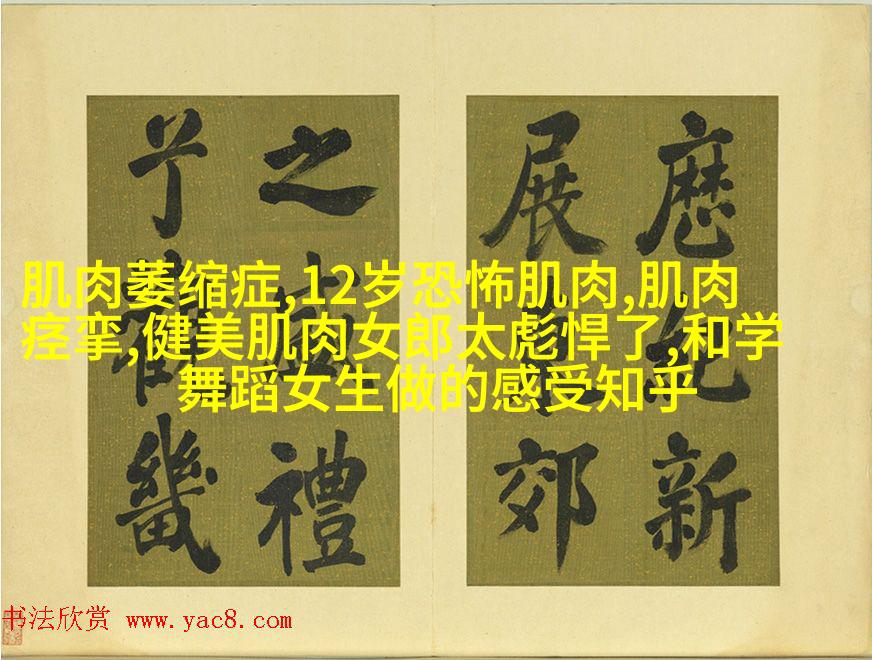 新
展
郊
之
禮
畿
肌肉萎缩症,12岁恐怖肌肉,肌肉
痉挛,健美肌肉女郎太彪悍了,和学
舞蹈女生做的感受知乎
书法欣赏 www.yac8.com